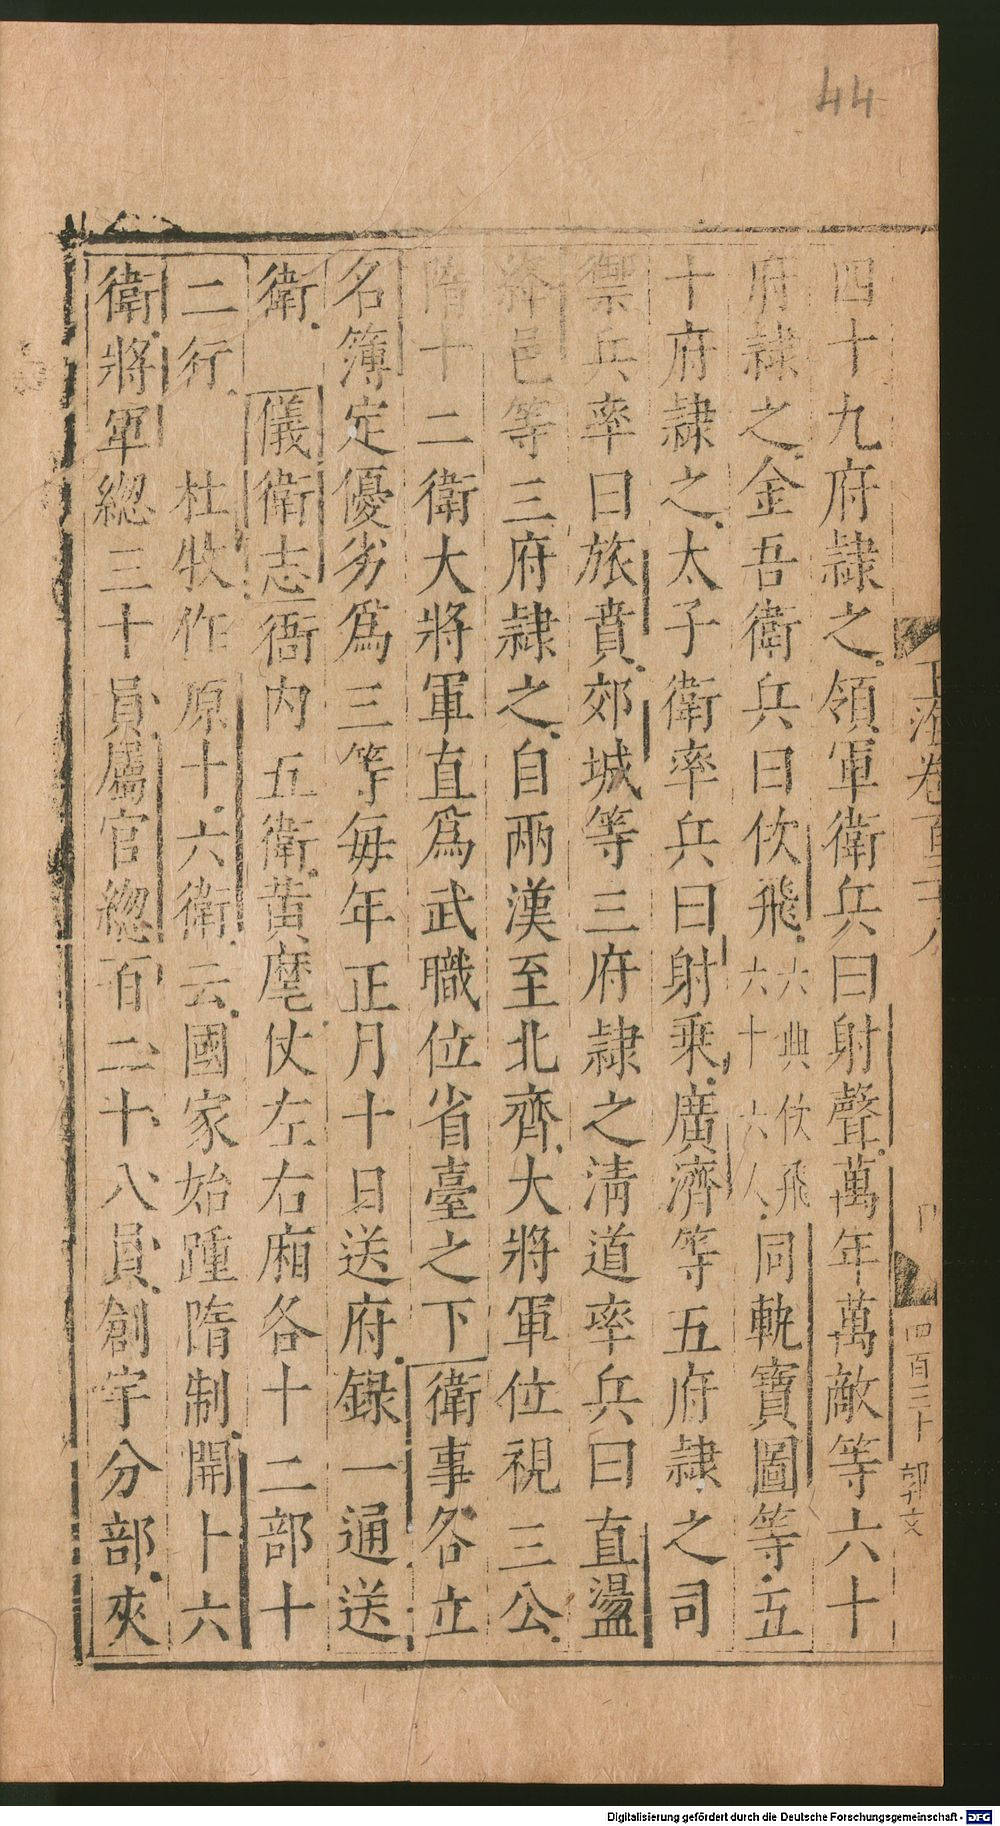 44
四十九府隷之領軍衛兵曰射聲萬年萬敵等六十
府隷之金吾衛兵曰佽飛六典佽飛六十六人同軌寶圖等五
十府隷之太子衛率兵曰射乗廣濟等五府隷之司
禦兵率曰旅賁郊城等三府隷之清道率兵曰直盪
絳邑等三府隷之自兩漢至北齊大將軍位視三公
隋十二衛大將軍直爲武職位省臺之下衛事各立
名簿定優劣爲三等每年正月十日送府録一通送
衛 儀衛志衙内五衛黄麾仗左右廂各十二部十
二行 杜牧作原十六衛云國家始踵隋制開十六
衛將軍緫三十員屬官緫百二十八員創宇分部夾
玉海卷百三十八
四百三十 郭文
Digitalisierung gefördert durch die Deutsche Forschungsgemeinschaft - DFG